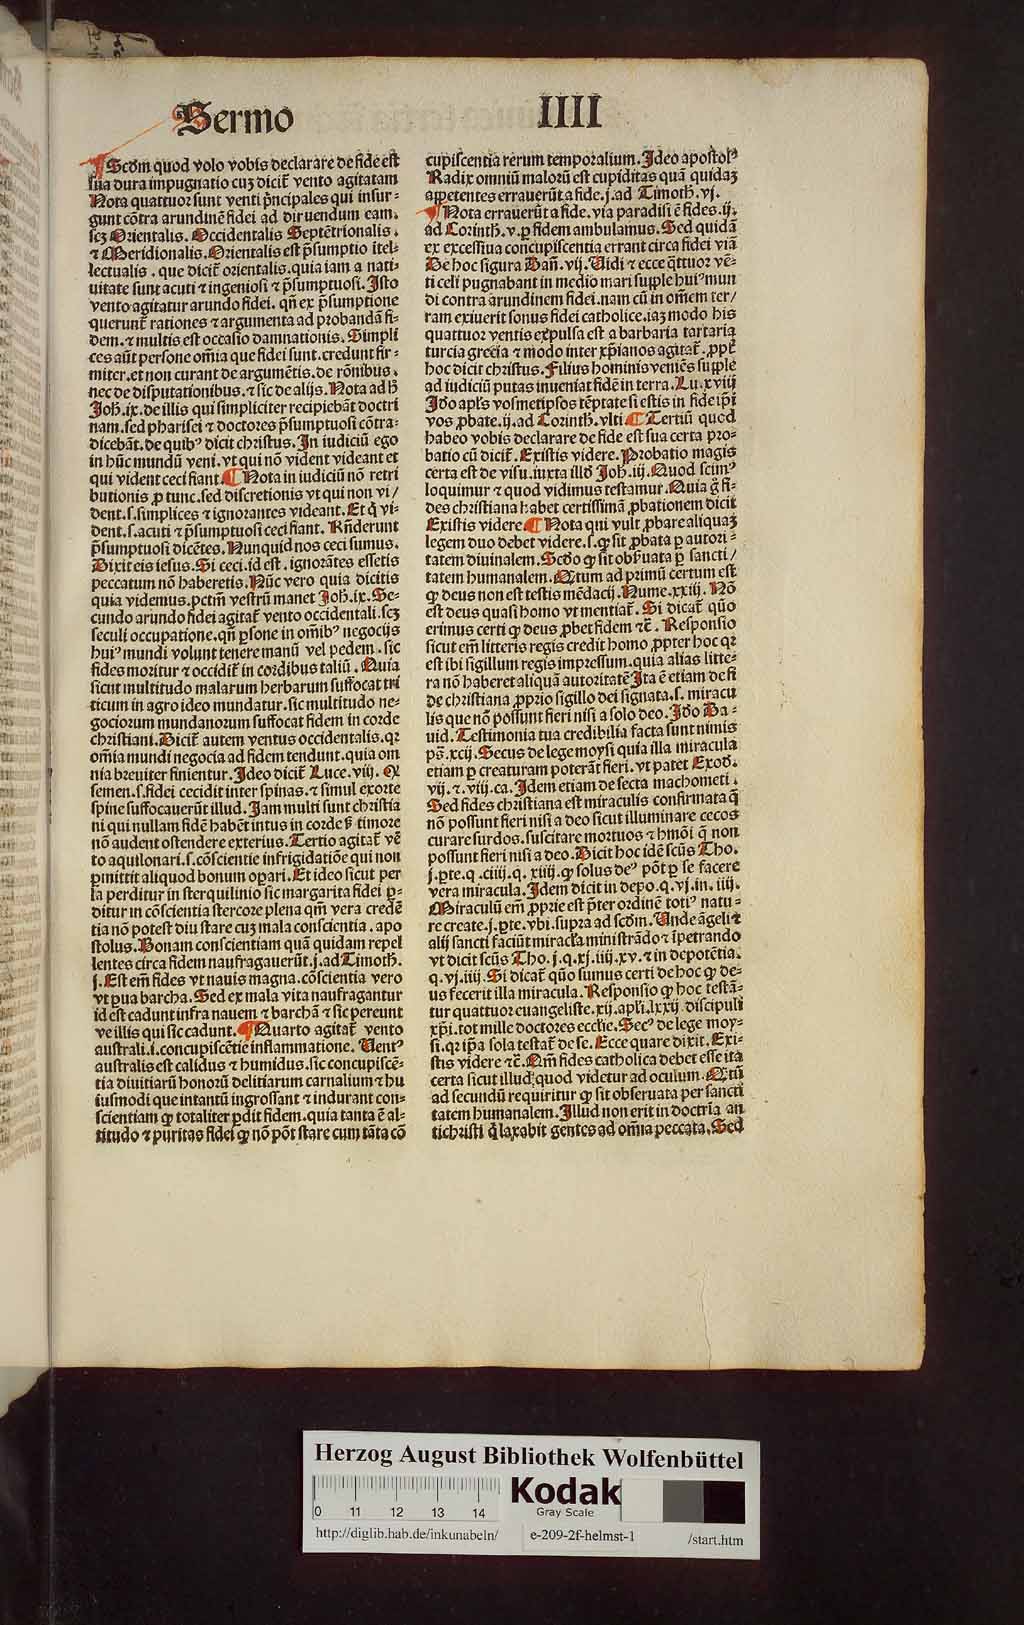 Sermo IIII
¶ Scd̄m quod volo vobis declarare de fide est
sua dura impugnatio cuʒ dicit̄ vento agitatam
Nota quattuor sunt venti p̄ncipales qui insur⸗
gunt cōtra arundinē fidei ad diruendum eam.
scʒ Orientalis. Occidentalis Septētrionalis.
⁊ Meridionalis. Orientalis est p̄sumptio itel⸗
lectualis. que dicit̄ orientalis. quia iam a nati⸗
uitate sunt acuti ⁊ ingeniosi ⁊ p̄sumptuosi. Isto
vento agitatur arundo fidei. qn̄ ex p̄sumptione
querunt̄ rationes ⁊ argumenta ad probandā fi⸗
dem. ⁊ multis est occasio damnationis. Simpli
ces aūt persone om̄ia que fidei sunt. credunt fir⸗
miter. et non curant de argumētis. de rōnibus.
nec de disputationibus. ⁊ sic de alijs. Nota ad h̄
Joh̄. ix. de illis qui simpliciter recipiebāt doctri
nam. sed pharisei ⁊ doctores p̄sumptuosi cōtra⸗
dicebāt. de quibꝰ dicit christus. In iudiciū ego
in hūc mundū veni. vt qui nō vident videant et
qui vident ceci fiant. ¶ Nota in iudiciū nō retri
butionis ꝓ tunc. sed discretionis vt qui non vi/
dent. s. simplices ⁊ ignorantes videant. Et q̄ vi⸗
dent. s. acuti ⁊ p̄sumptuosi ceci fiant. Rn̄derunt
p̄sumptuosi dicētes. Nunquid nos ceci sumus.
Dixit eis iesus. Si ceci. id est. ignorātes essetis
peccatum nō haberetis. Nūc vero quia dicitis
quia videmus. pctm̄ vestrū manet Joh̄. ix. Se⸗
cundo arundo fidei agitat̄ vento occidentali. scʒ
seculi occupatione. qn̄ ꝑsone in om̄ibꝰ negocijs
huiꝰ mundi volunt tenere manū vel pedem. sic
fides moritur ⁊ occidit̄ in cordibus taliū. Quia
sicut multitudo malarum herbarum suffocat tri
ticum in agro ideo mundatur. sic multitudo ne⸗
gociorum mundanorum suffocat fidem in corde
christiani. Dicit̄ autem ventus occidentalis. qꝛ
om̄ia mundi negocia ad fidem tendunt. quia om
nia breuiter finientur. Ideo dicit̄ Luce. viij. Qꝫ
semen. s. fidei cecidit inter spinas. ⁊ simul exorte
spine suffocauerūt illud. Jam multi sunt christia
ni qui nullam fidē habēt intus in corde ꝫ timore
nō audent ostendere exterius. Tertio agitat̄ vē
to aquilonari. s. cōscientie infrigidatiōe qui non
ꝑmittit aliquod bonum oꝑari. Et ideo sicut per
la perditur in sterquilinio sic margarita fidei ꝑ⸗
ditur in cōscientia stercore plena qm̄ vera credē
tia nō potest diu stare cuʒ mala conscientia. apo
stolus. Bonam conscientiam quā quidam repel
lentes circa fidem naufragauerūt. j. ad Timoth̄.
j. Est em̄ fides vt nauis magna. cōscientia vero
vt ꝑua barcha. Sed ex mala vita naufragantur
id est cadunt infra nauem ⁊ barchā ⁊ sic pereunt
ve illis qui sic cadunt. ¶ Quarto agitat̄ vento
australi. i. concupiscētie inflammatione. Uentꝰ
australis est calidus ⁊ humidus. sic concupiscē⸗
tia diuitiarū honorū delitiarum carnalium ⁊ hu
iusmodi que intantū ingrossant ⁊ indurant con⸗
scientiam ꝙ totaliter ꝑdit fidem. quia tanta ē al⸗
titudo ⁊ puritas fidei ꝙ nō pōt stare cum tāta cō
cupiscentia rerum temporalium. Ideo apostolꝰ
Radix omniū malorū est cupiditas quā quidaʒ
appetentes errauerūt a fide. j. ad Timoth̄. vj.
¶ Nota errauerūt a fide. via paradisi ē fides. ij.
ad Corinth̄. v. ꝑ fidem ambulamus. Sed quidā
ex excessiua concupiscentia errant circa fidei viā
De hoc figura Dan̄. vij. Uidi ⁊ ecce q̄ttuor vē⸗
ti celi pugnabant in medio mari supple huiꝰ mun
di contra arundinem fidei. nam cū in om̄em ter/
ram exiuerit sonus fidei catholice. iaʒ modo his
quattuor ventis expulsa est a barbaria tartaria
turcia grecia ⁊ modo inter xp̄ianos agitat̄. ꝓpt̄
hoc dicit christus. Filius hominis veniēs supple
ad iudiciū putas inueniat fidē in terra. Lu. xviij
Ido apl̄s vosmetip̄sos tēptate si estis in fide ip̄i
vos ꝓbate. ij. ad Corinth̄. vlti ¶ Tertiū quod
habeo vobis declarare de fide est sua certa pro⸗
batio cū dicit̄. Existis videre. Probatio magis
certa est de visu. iuxta illd̄ Joh̄. iij. Quod scimꝰ
loquimur ⁊ quod vidimus testamur. Quia g̊ fi⸗
des christiana habet certissimā ꝓbationem dicit
Existis videre ¶ Nota qui vult ꝓbare aliquaʒ
legem duo debet videre. s. ꝙ sit ꝓbata ꝑ autori⸗
tatem diuinalem. Scd̄o ꝙ sit obẜuata ꝑ sancti/
tatem humanalem. Qꝫtum ad primū certum est
ꝙ deus non est testis mēdacij. Nume. xxiij. Nō
est deus quasi homo vt mentiat̄. Si dicat̄ quō
erimus certi ꝙ deus ꝓbet fidem ⁊c̄. Responsio
sicut em̄ litteris regis credit homo ꝓpter hoc qꝛ
est ibi sigillum regis impressum. quia alias litte⸗
ra nō haberet aliquā autoritatē Ita ē etiam de fi
de christiana ꝓprio sigillo dei signata. s. miracu
lis que nō possunt fieri nisi a solo deo. Ido Da⸗
uid. Testimonia tua credibilia facta sunt nimis
ps̄. xcij. Secus de lege moysi quia illa miracula
etiam ꝑ creaturam poterāt fieri. vt patet Exod̄.
vij. ⁊. viij. ca. Idem etiam de secta machometi.
Sed fides christiana est miraculis confirmata q̄
nō possunt fieri nisi a deo sicut illuminare cecos
curare surdos. suscitare mortuos ⁊ hmōi q̄ non
possunt fieri nisi a deo. Dicit hoc idē scūs Tho.
j. ꝑte. q. ciiij. q. xiiij. ꝙ solus deꝰ pōt ꝑ se facere
vera miracula. Idem dicit in de po. q. vj. in. iiij.
Miraculū em̄ ꝓprie est p̄ter ordinē totiꝰ natu⸗
re create. j. ꝑte. vbi. supra ad scd̄m. Unde āgeli ⁊
alij sancti faciūt miracl̄a ministrādo ⁊ īpetrando
vt dicit scūs Tho. j. q. xj. iiij. xv. ⁊ in de potētia.
q. vj. iiij. Si dicat̄ quō sumus certi de hoc ꝙ de⸗
us fecerit illa miracula. Responsio ꝙ hoc testā⸗
tur quattuor euangeliste. xij. apl̄i. lxxij. discipuli
xp̄i. tot mille doctores eccl̄ie. Secꝰ de lege moy⸗
si. qꝛ ip̄a sola testat̄ de se. Ecce quare dixit. Exi⸗
stis videre ⁊c̄. Nm̄ fides catholica debet esse ita
certa sicut illud quod videtur ad oculum. Qꝫtū
ad secundū requiritur ꝙ sit obseruata per sancti
tatem humanalem. Illud non erit in doctrīa an
tichristi q̄ laxabit gentes ad om̄ia peccata. Sed
Herzog August Bibliothek Wolfenbüttel
0 11 12 13 14
Kodak
Gray Scale
http://diglib.hab.de/inkunabeln/ e-209-2f-helmst-1 /start.htm